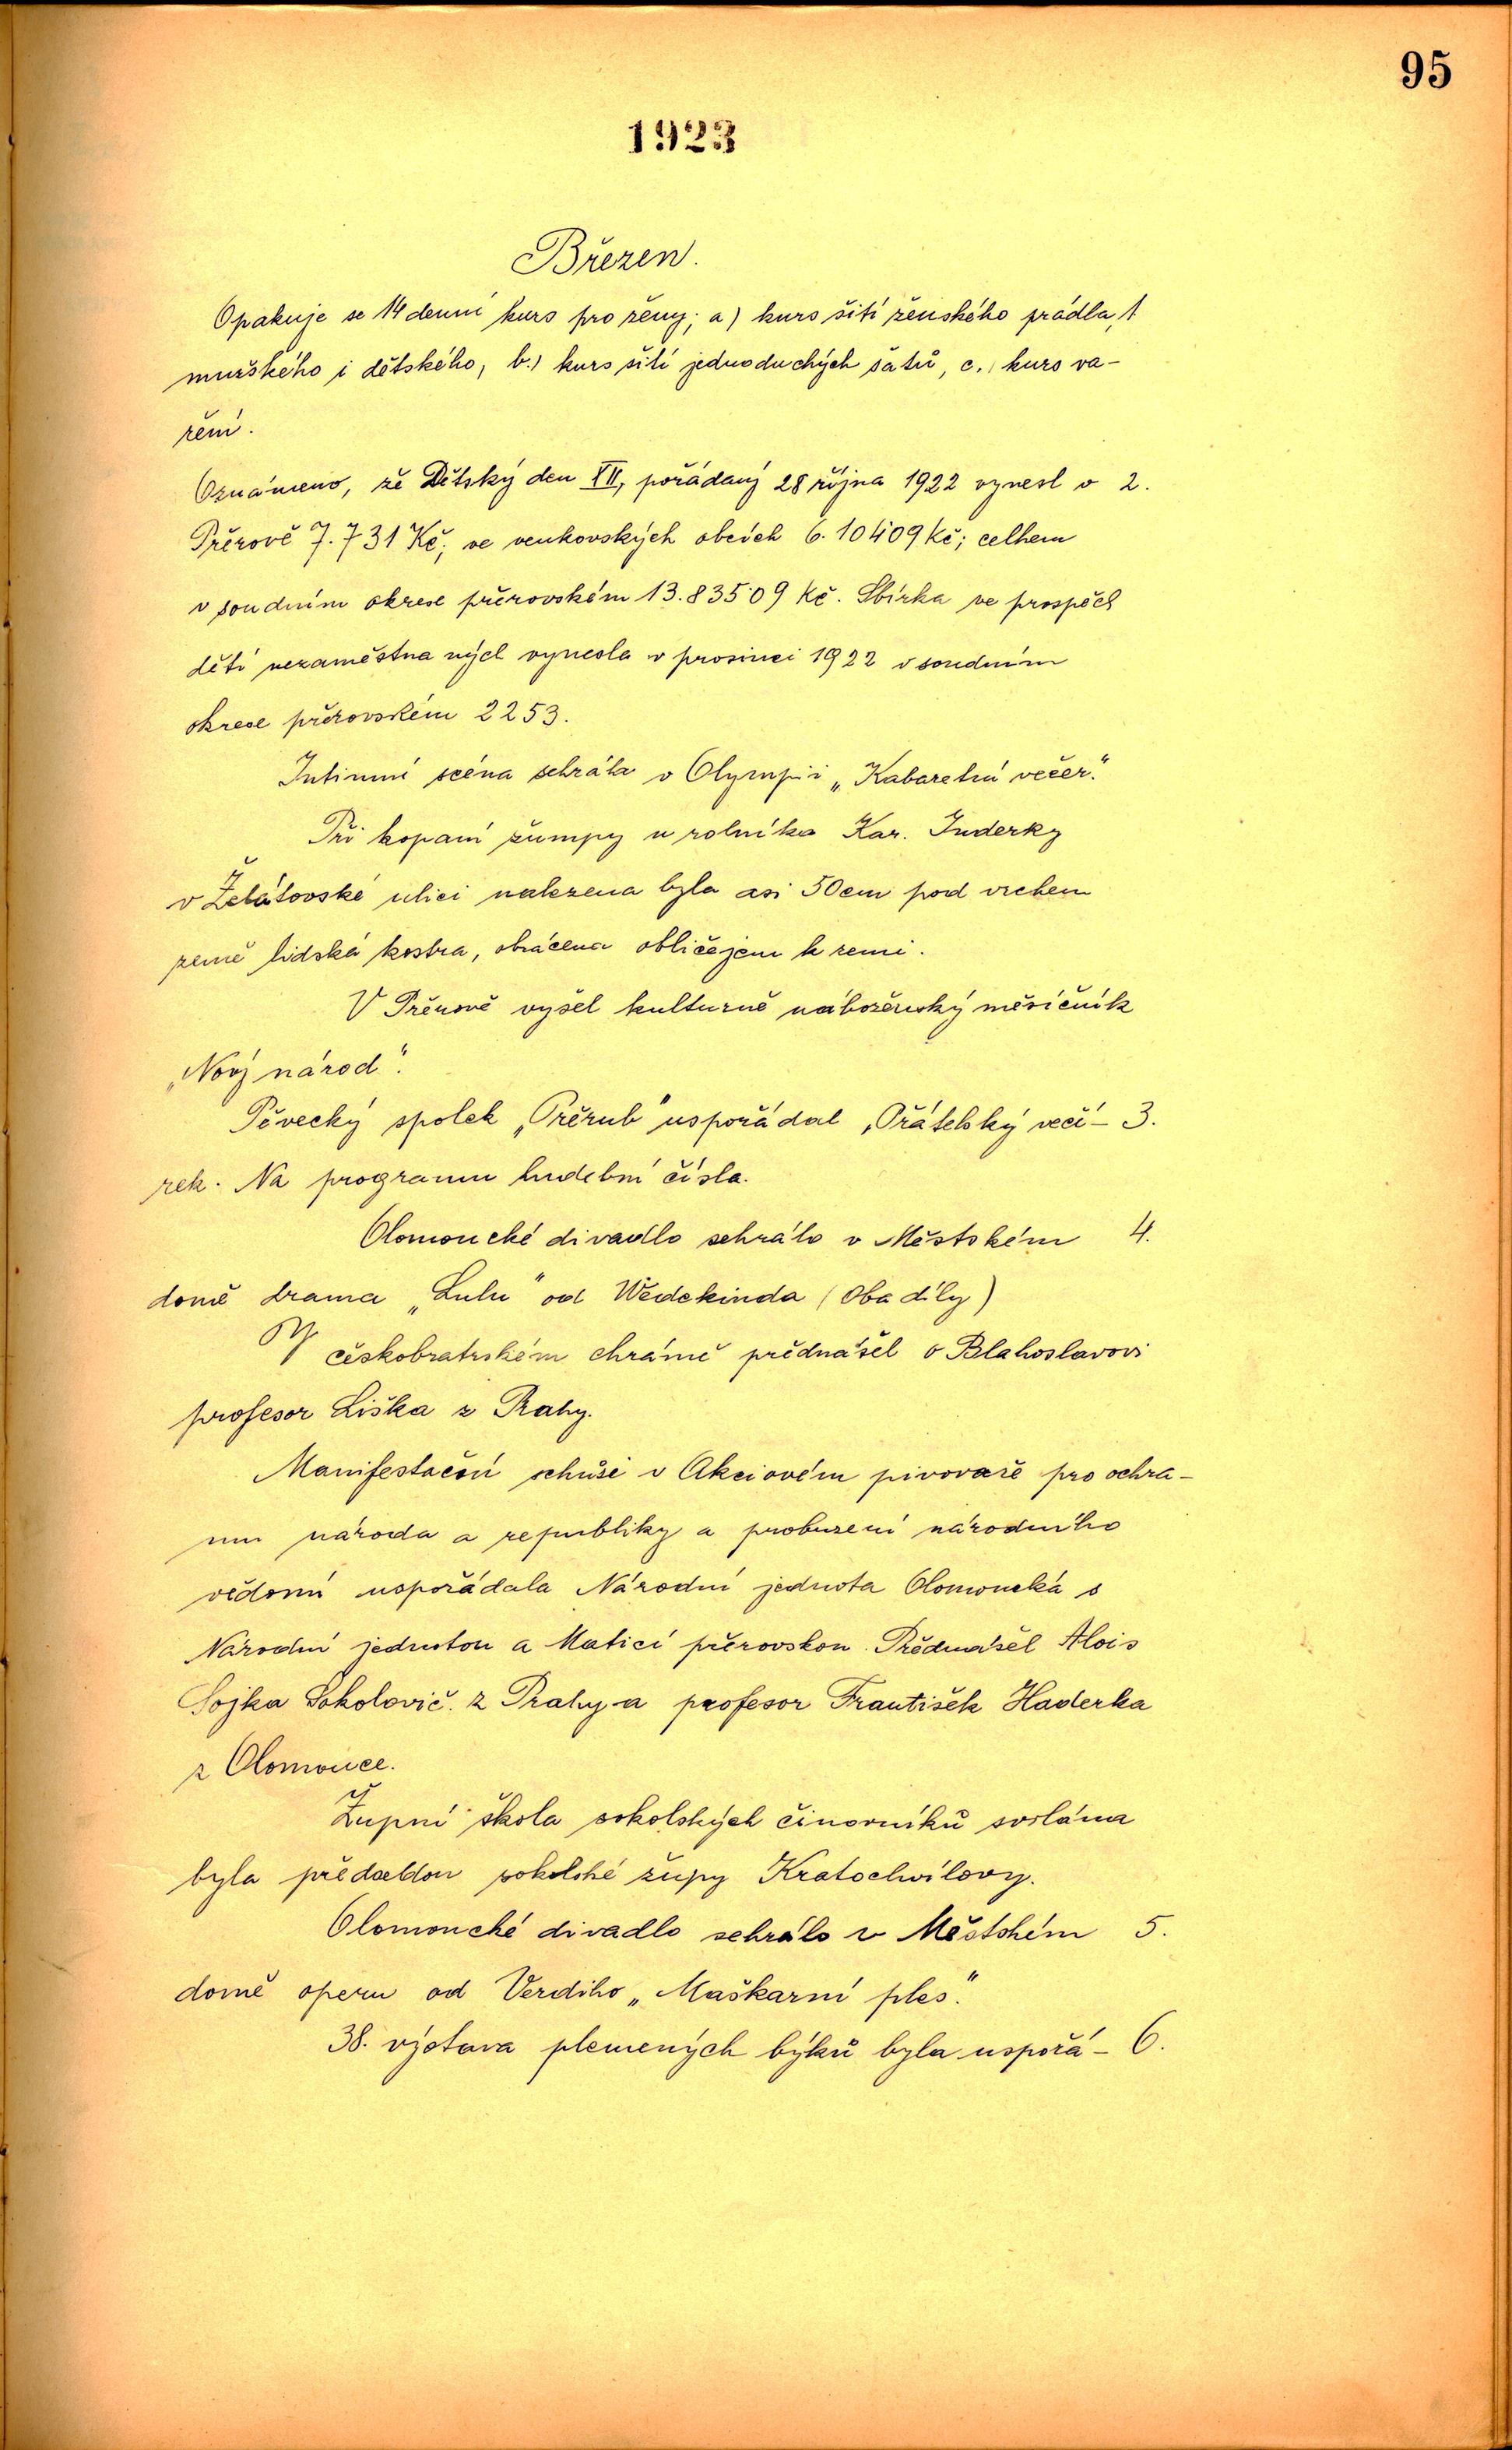 95
1923
Březen.
Opakuje se 14 denní kurs pro ženy; a) kurs šití ženského prádla, 1.
mužského i dětského, b.) kurs šití jednoduchých šatů, c.) kurs va-
ření.
Oznámeno, že Dětský den XII, pořádaný 28 října 1922 vynesl v 2.
Přerově 7.731 Kč; ve venkovských obcích 6.104'09 Kč; celkem
v soudním okrese přerovském 13.835'09 Kč. Sbírka ve prospěch
dětí nezaměstnaných vynesla v prosinci 1922 v soudním
okrese přerovském 2253.
Intimní scéna sehrála v Olympii „Kabaretní večer."
Při kopaní žumpy u rolníka Kar. Inderky
v Želátovské ulici nalezena byla asi 50 cm pod vrchem
země lidská kostra, obrácena obličejem k zemi.
V Přerově vyšel kulturně náboženský měsíčník
„Nový národ".
Pěvecký spolek „Přerub" uspořádal „Přátelský večí- 3.
rek. Na programu hudební čísla.
Olomoucké divadlo sehrálo v Městském 4.
domě drama „Lulu" od Wedekinda (Oba díly)
V českobratrském chrámě přednášel o Blahoslavovi
profesor Liška z Prahy.
Manifestační schůzi v Akciovém pivovaře pro ochra-
nu národa a republiky a probuzení národního
vědomí uspořádala Národní jednota Olomoucká s
Národní jednotou a Maticí přerovskou. Přednášel Alois
Sojka Sokolovič. z Prahy a profesor František Haderka
z Olomouce.
Župní škola sokolských činovníků svolána
byla předsedou sokolské župy Kratochwílovy.
Olomoucké divadlo sehrálo v Městském 5.
domě operu od Verdiho „Maškarní ples."
38. výstava plemených býků byla uspořá- 6.